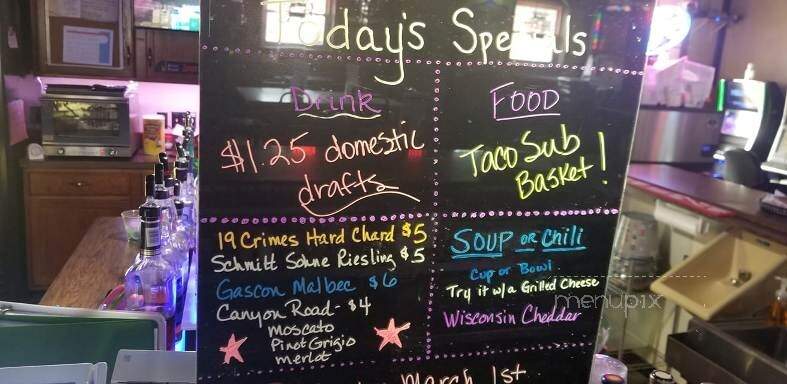 Today's Specials
Drink
$1.25 domestic
drafts
19 Crimes Hard Chard $5
Schmitt Sohne Riesling $5
Gascon Malbec $6
Canyon Road - $4
moscato
Pinot Grigio
merlot
FOOD
Taco Sub
Basket!
SOUP OR Chili
Cup or Bowl
Try it w/a Grilled Cheese
Wisconsin Cheddar
March 1st
menupix